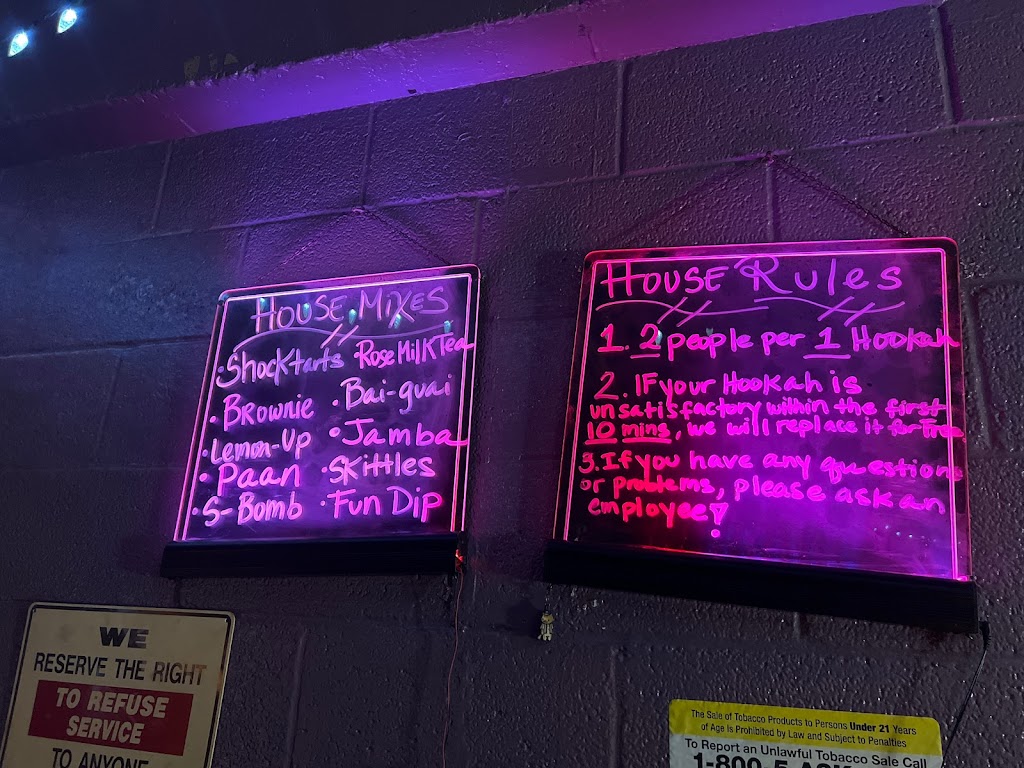 House Mixes
• Shocktarts
• Brownie
• Lemon-Up
• Paan
• S-Bomb
• Rose Milk Tea
• Bai-guai
• Jamba
• Skittles
• Fun Dip
House Rules
1. 2 people per 1 Hookah
2. If your Hookah is
unsatisfactory within the first
10 mins, we will replace it for free
3. If you have any questions
or problems, please ask an
employee!
WE
RESERVE THE RIGHT
TO REFUSE
SERVICE
TO ANYONE
The Sale of Tobacco Products to Persons Under 21 Years
of Age is Prohibited by Law and Subject to Penalties
To Report an Unlawful Tobacco Sale Call
1-800-5 ASK